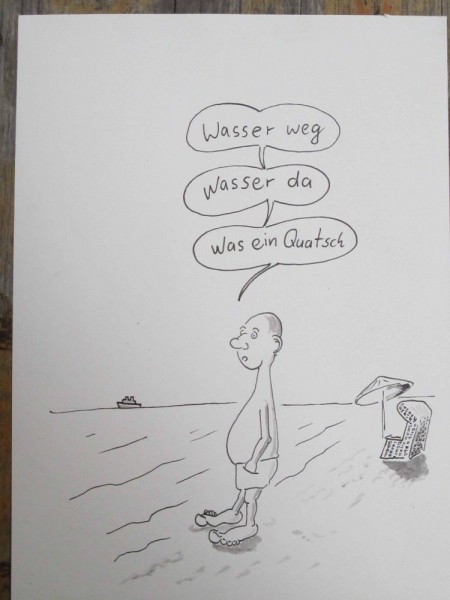 Wasser weg
Wasser da
Was ein Quatsch